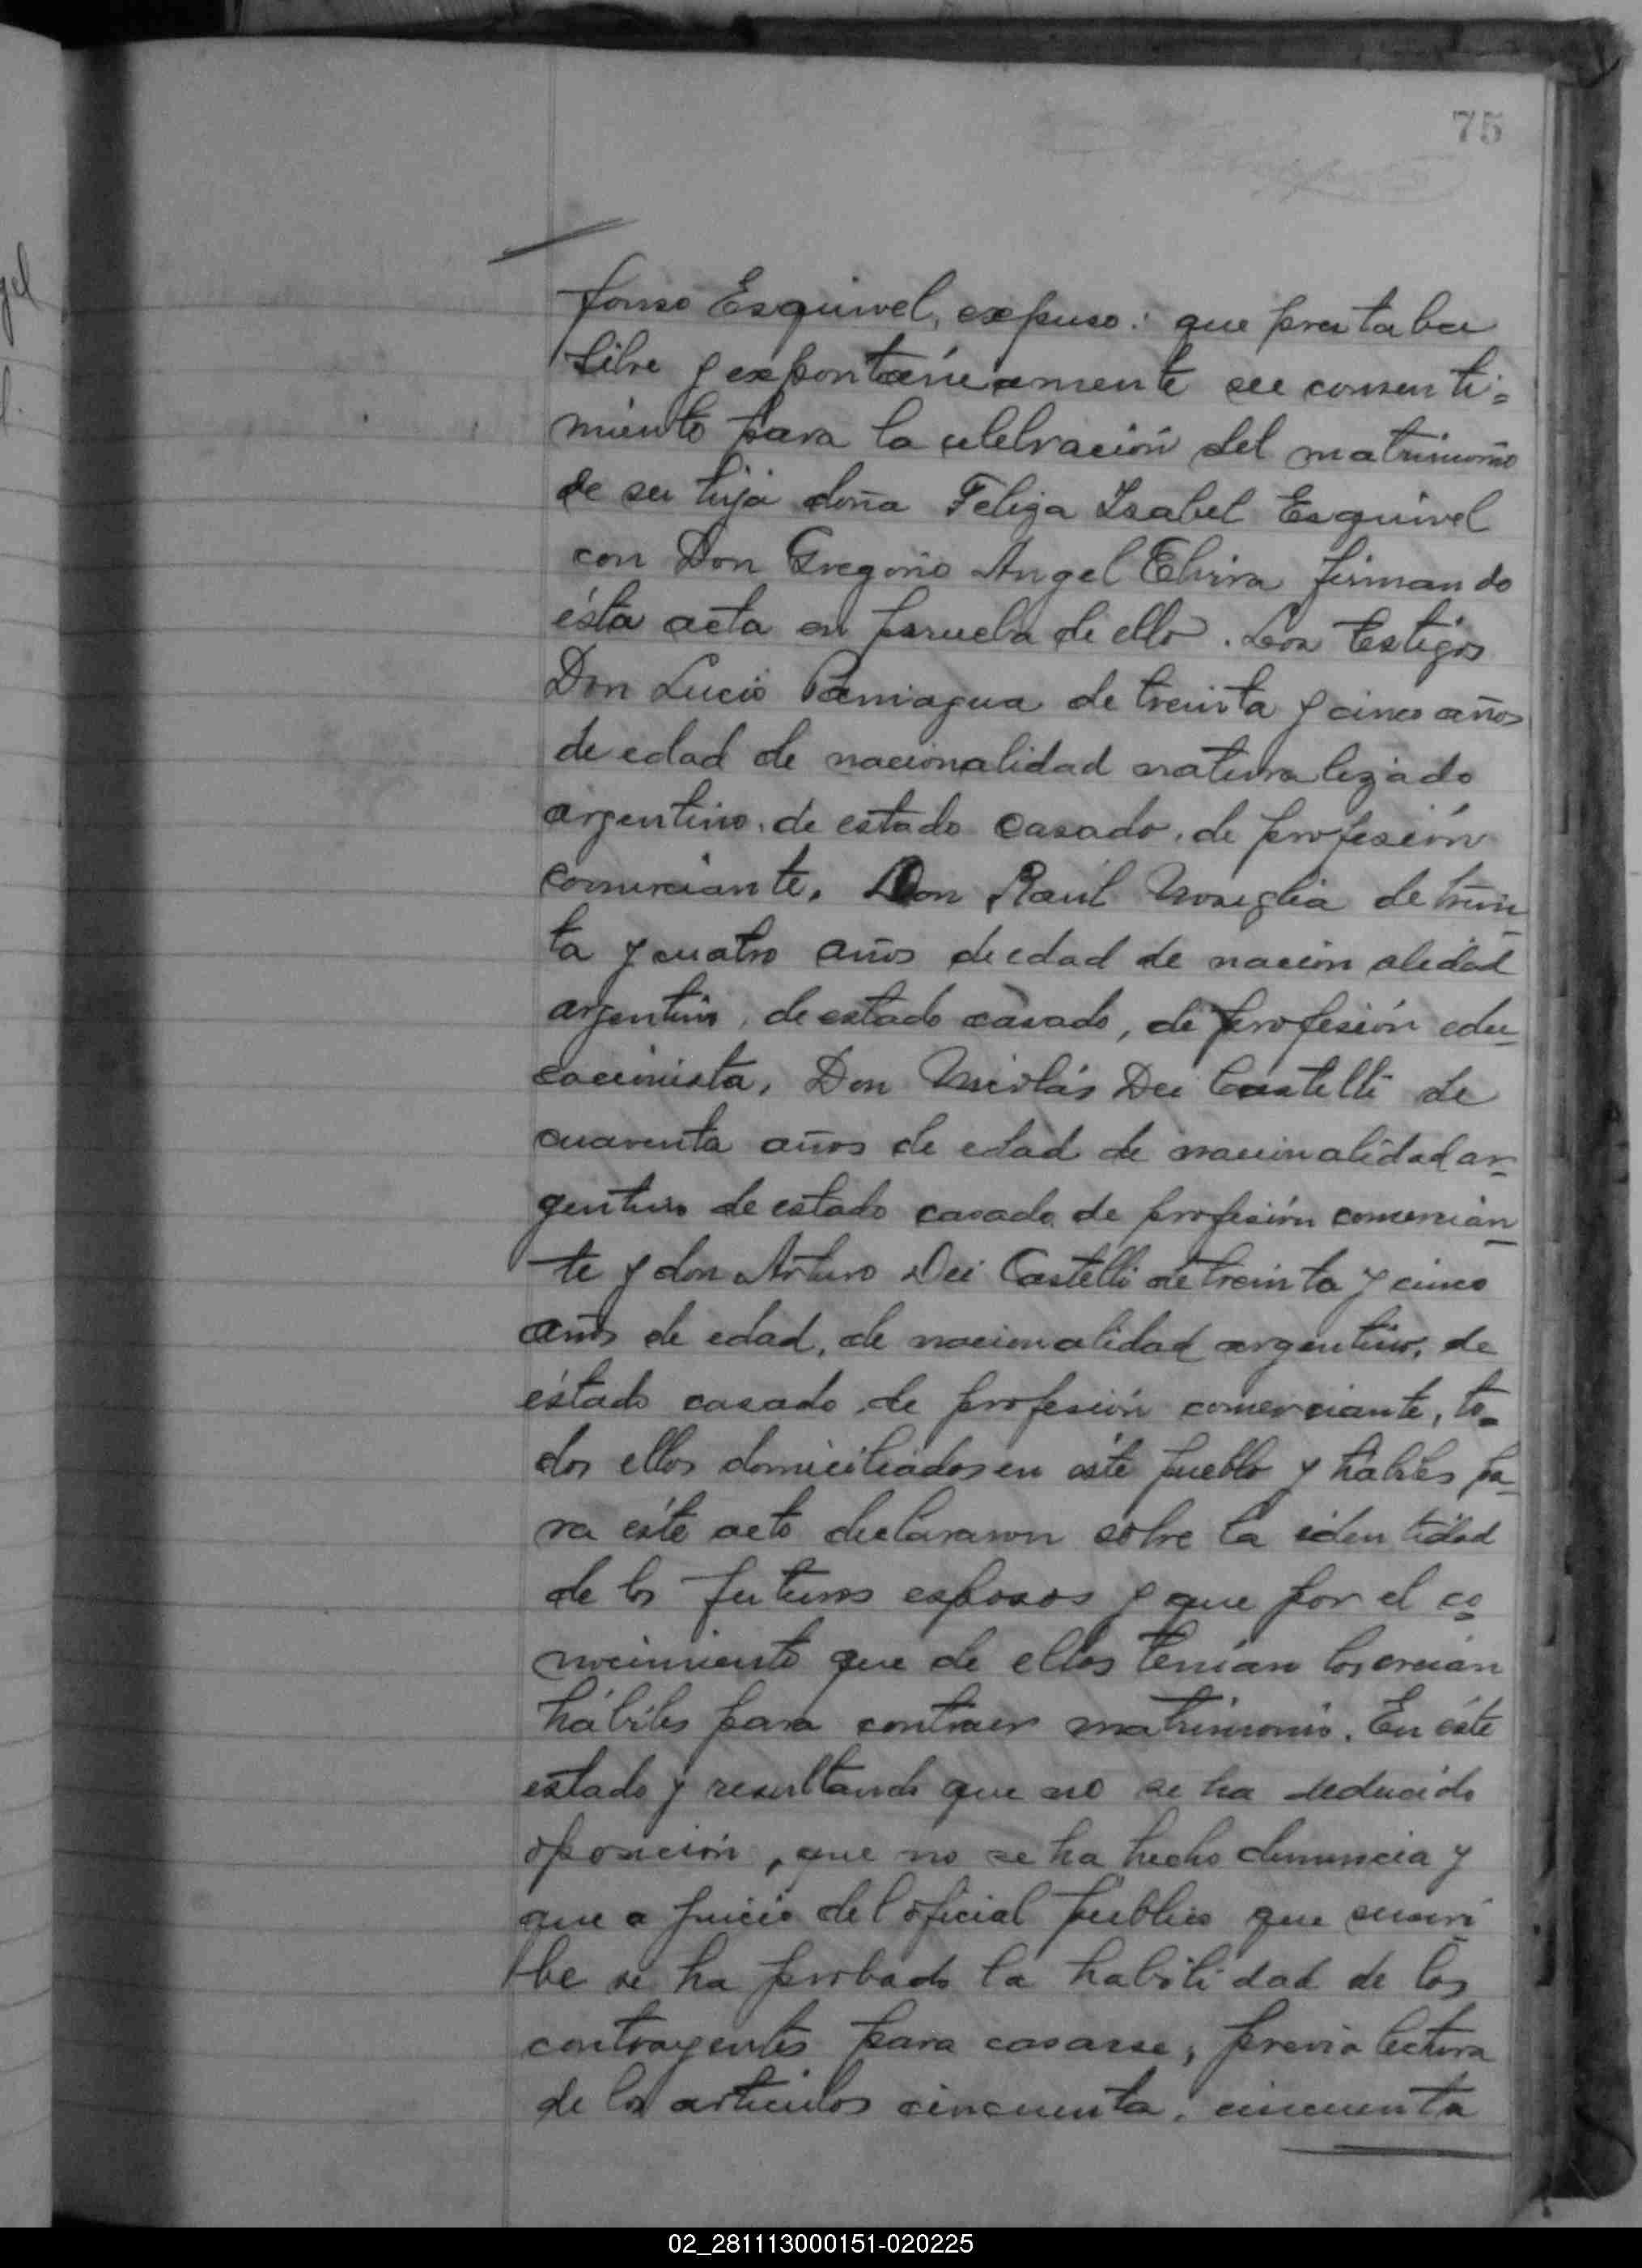 75
fonso Esquivel, expuso: que prestaba
libre y expontáneamente su consenti=
miento para la celebración del matrimonio
de su hija doña Feliza Isabel Esquivel
con Don Gregorio Angel Elvira firmando
ésta acta en prueba de ello. Los testigos
Don Lucio Paniagua de treinta y cinco años
de edad de nacionalidad naturalizado
argentino, de estado casado, de profesión
comerciante, Don Raúl de trein
ta y cuatro años de edad de nacionalidad
argentino, de estado casado, de profesión edu
cacionista, Don Nicolás Dei Castelli de
cuarenta años de edad de nacionalidad ar
gentino de estado casado de profesión comercian
te y don Arturo Dei Castelli de treinta y cinco
años de edad, de nacionalidad argentino, de
estado casado, de profesión comerciante, to=
dos ellos domiciliados en éste pueblo y hábiles pa
ra éste acto declararon sobre la identidad
de los futuros esposos y que por el co
nocimiento que de ellos tenían los creían
hábiles para contraer matrimonio. En éste
estado y resultando que no se ha deducido
oposición, que no se ha hecho denuncia y
que a juicio del oficial público que suscri
be se ha probado la habilidad de los
contrayentes para casarse, previa lectura
de los artículos cincuenta, cincuenta
02_281113000151-020225